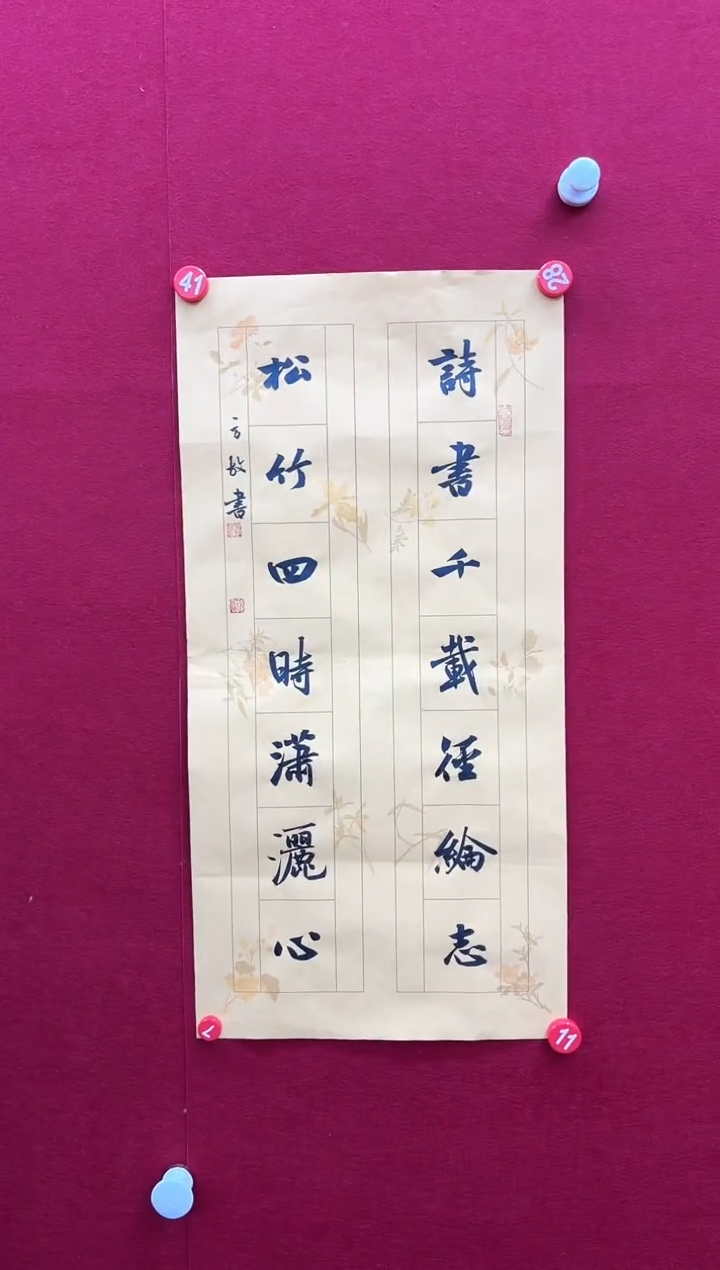 詩書千載徑綸志
松竹四時瀟灑心
方敏書
41
28
7
11